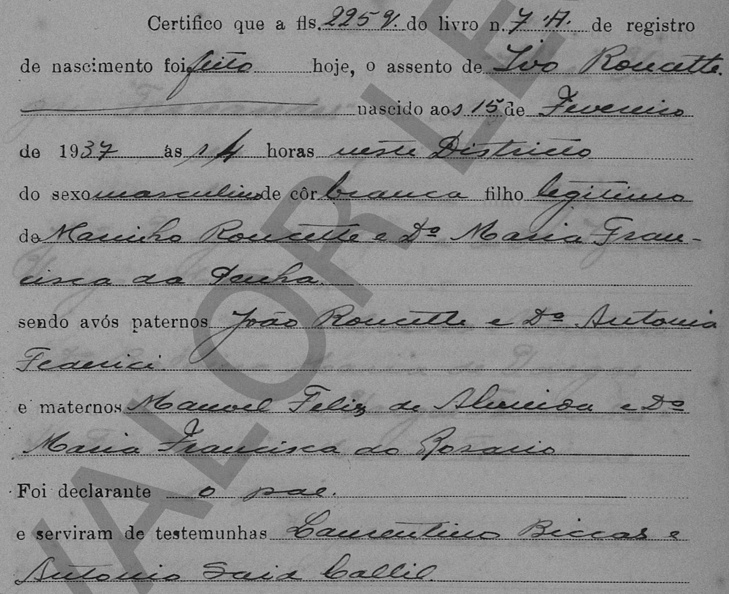 Certifico que a fls. 225 v. do livro n. 7 A. de registro
de nascimento foi feito hoje, o assento de Ivo Roncette.
nascido aos 15 de Fevereiro
de 1937 ás 14 horas neste Districto
do sexo masculino de côr branca filho legitimo
de Marinho Roncette e Dª Maria Fran-
cisca da Penha.
sendo avós paternos João Roncette e Dª Antonia
Federici
e maternos Manoel Felix de Almeida e Dª
Maria Francisca do Rosario
Foi declarante o pae.
e serviram de testemunhas Laurentino Biccas e
Antonio Said Callil.
VALOR LE